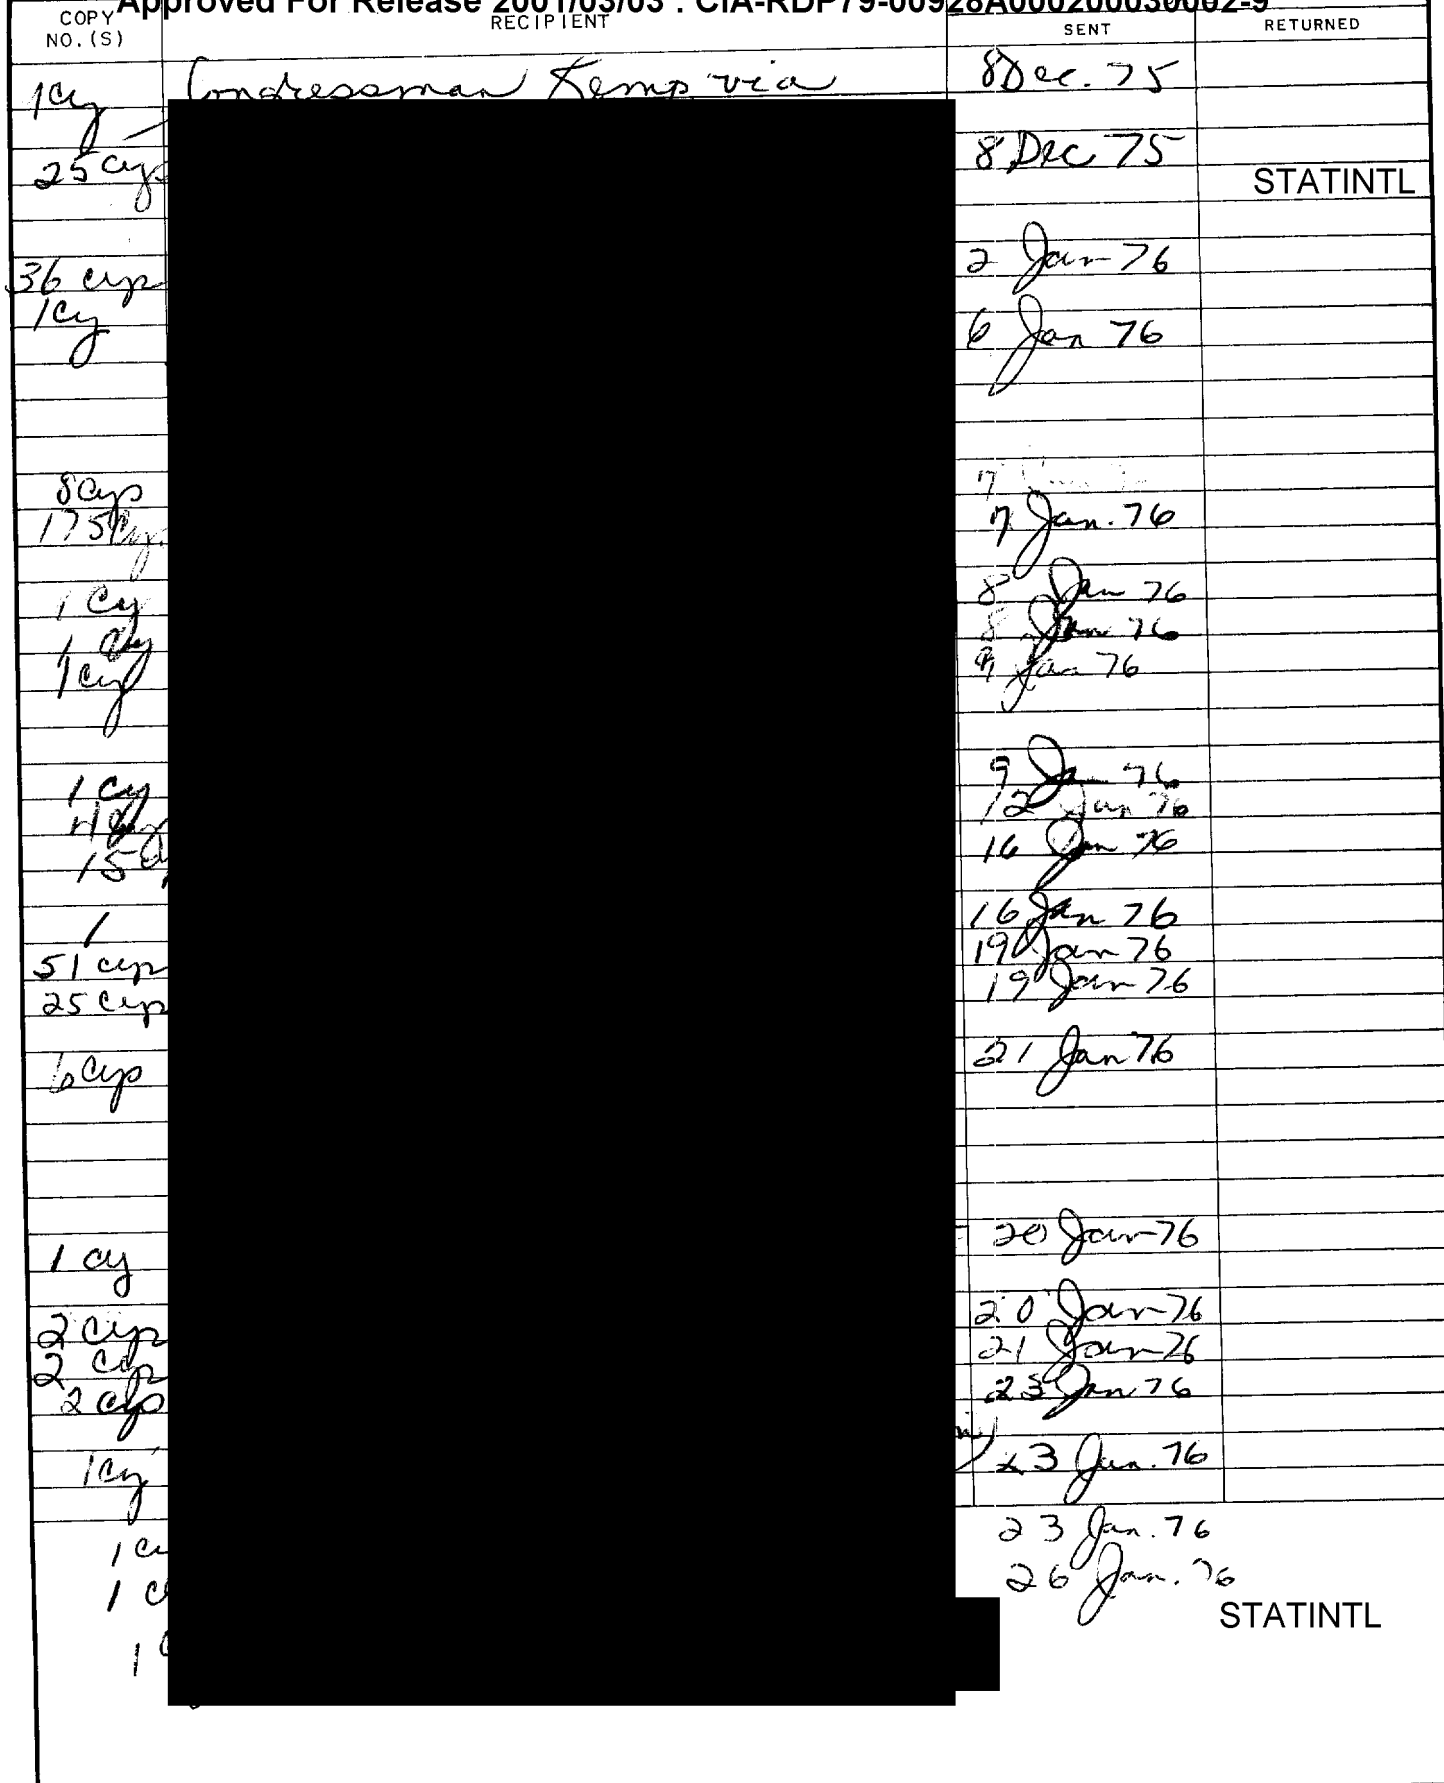 Approved For Release 2001/03/03 : CIA-RDP79-00928A000200030002-9
COPY NO.(S) RECIPIENT SENT RETURNED
1cy Congressman Kemp via 8 Dec. 75
25 cys 8 Dec 75
STATINTL
36 cys 2 Jan 76
1cy 6 Jan 76
8 cys 7
175 cys. 7 Jan. 76
1 cy 8 Jan 76
1 cy 8 Jan 76
1 cy 9 Jan 76
1 cy 9 Jan 76
12 Jan 76
15 16 Jan 76
1 16 Jan 76
51 cys 19 Jan 76
25 cys 19 Jan 76
6 cys 21 Jan 76
1 cy 20 Jan 76
2 cys 20 Jan 76
2 cys 21 Jan 76
2 cys 23 Jan 76
1cy 23 Jan. 76
1 c 23 Jan. 76
1 c 26 Jan. 76
STATINTL
1